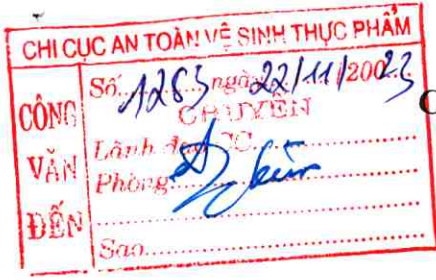 CHI CỤC AN TOÀN VỆ SINH THỰC PHẨM
CÔNG VĂN ĐẾN
Số 1283 ngày 22/11/2002.3
CHUYỂN
Lãnh đạo CC
Phòng
Sao
C